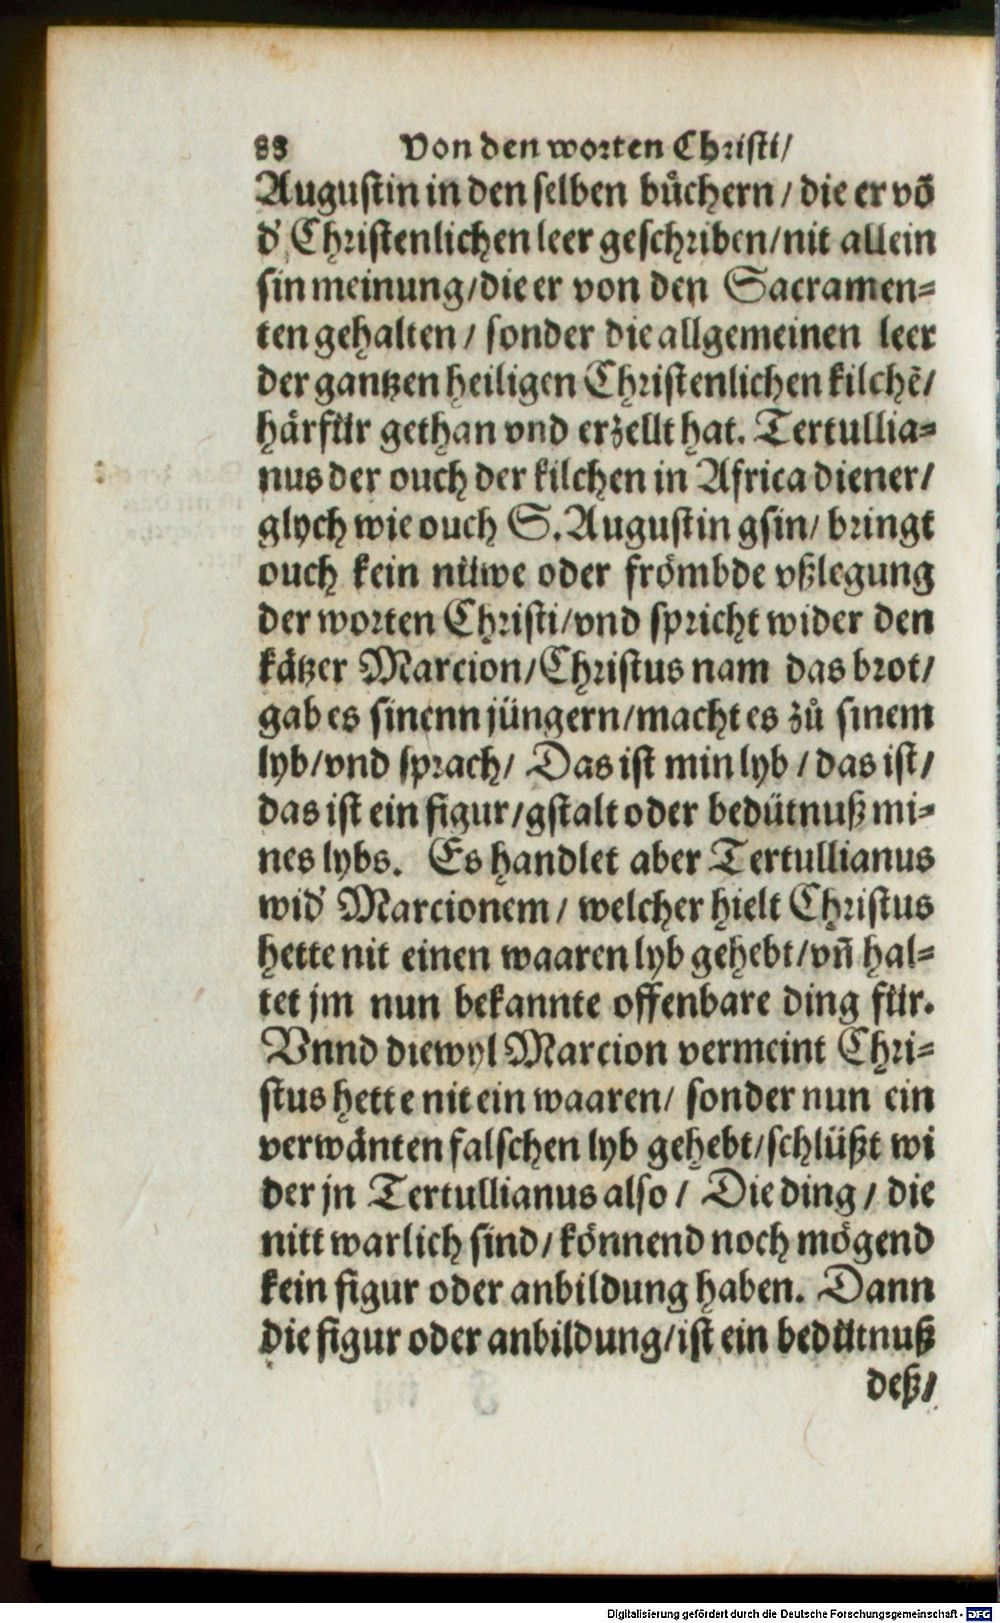 88 Von den worten Christi/
Augustin in den selben bůchern/ die er võ
d' Christenlichen leer geschriben/ nit allein
sin meinung/ die er von den Sacramen⸗
ten gehalten/ sonder die allgemeinen leer
der gantzen heiligen Christenlichen kilchẽ/
härfür gethan vnd erzellt hat. Tertullia⸗
nus der ouch der kilchen in Africa diener/
glych wie ouch S. Augustin gsin/ bringt
ouch kein nüwe oder frömbde vßlegung
der worten Christi/ vnd spricht wider den
kätzer Marcion/ Christus nam das brot/
gab es sinenn jüngern/ macht es zů sinem
lyb/ vnd sprach/ Das ist min lyb/ das ist/
das ist ein figur/ gstalt oder bedütnuß mi⸗
nes lybs. Es handlet aber Tertullianus
wid' Marcionem/ welcher hielt Christus
hette nit einen waaren lyb gehebt/ vñ hal⸗
tet jm nun bekannte offenbare ding für.
Vnnd diewyl Marcion vermeint Chri⸗
stus hette nit ein waaren/ sonder nun ein
verwänten falschen lyb gehebt/ schlüßt wi
der jn Tertullianus also/ Die ding/ die
nitt warlich sind/ könnend noch mögend
kein figur oder anbildung haben. Dann
die figur oder anbildung/ ist ein bedütnuß
deß/
Digitalisierung gefördert durch die Deutsche Forschungsgemeinschaft - DFG